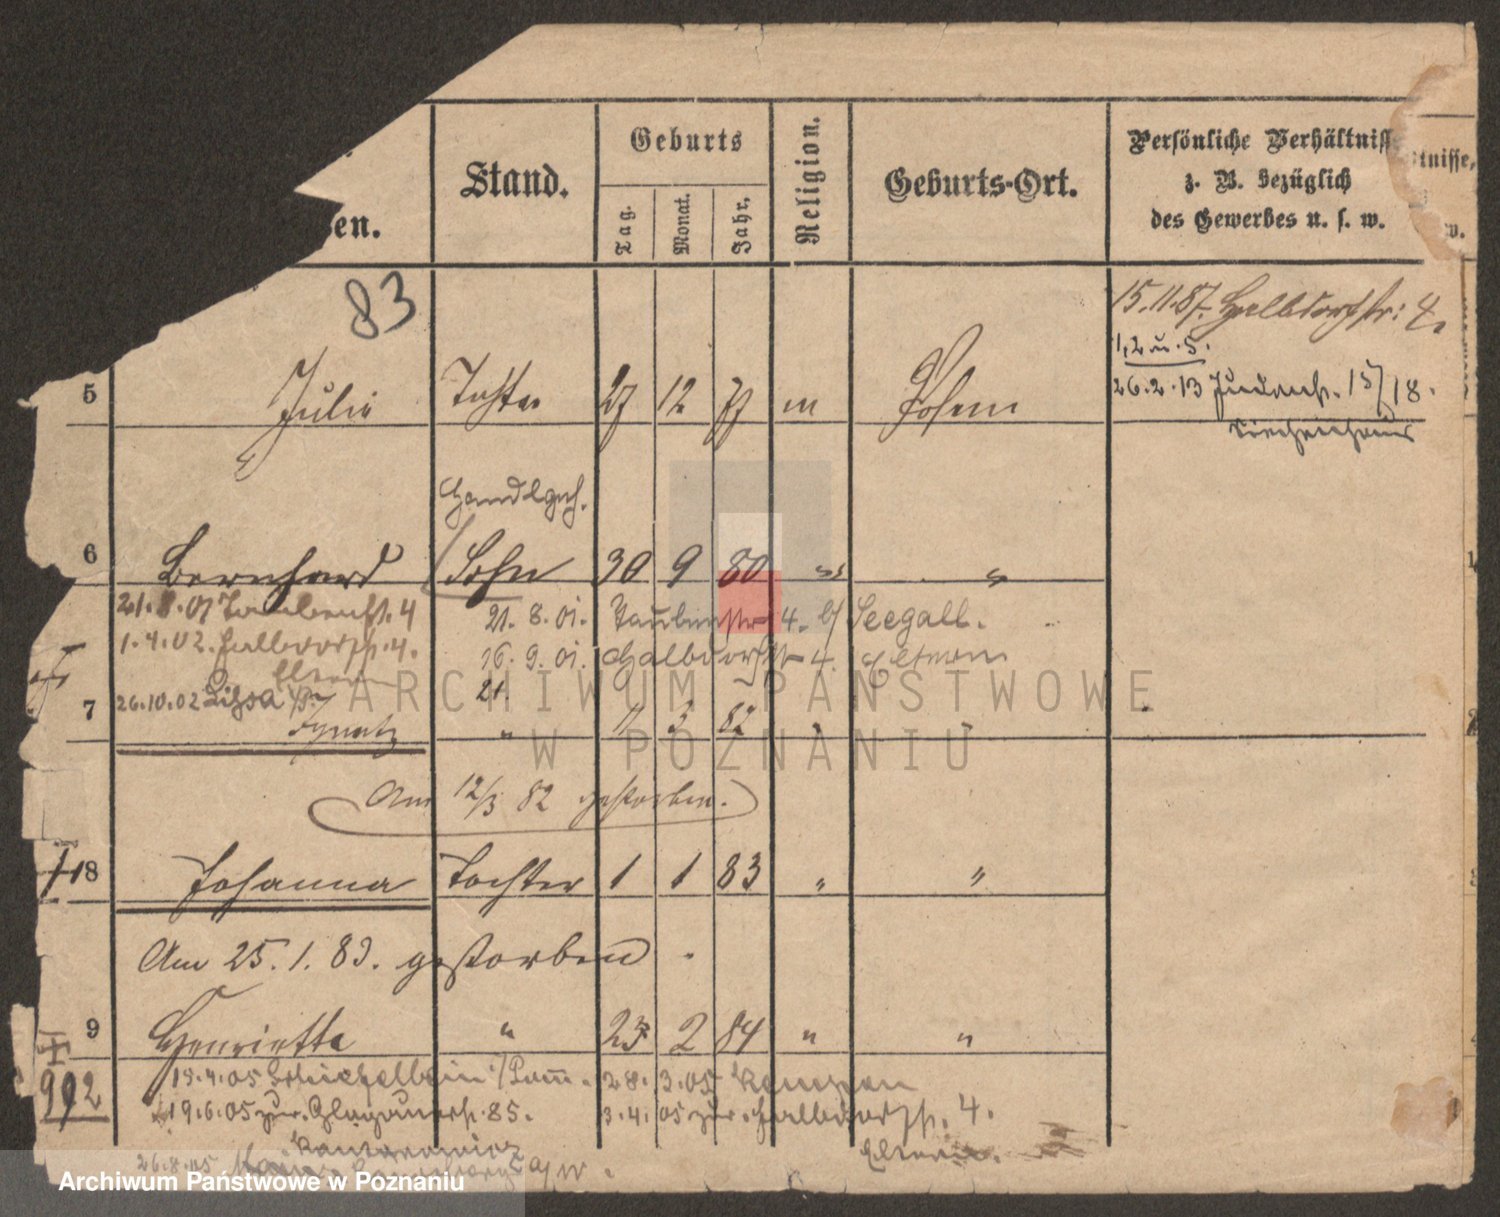 en.
Stand.
Geburts
Tag.
Monat.
Jahr.
Religion.
Geburts-Ort.
Persönliche Verhältnisse
z. B. bezüglich
des Gewerbes u. s. w.
tnisse,
w.
83
15.11.87. Halbdorfstr: 4.
1, 2 u. 5.
5 Julie Tochter 27 12 77 m Posen
26.2.13 15/18.
Handlgeh.
6 Bernhard Sohn 30 9 80 " "
21.8.01 Taubenst. 4
21. 8. 01. Taubenstr 4. b/ Seegall.
1.4.02. Halbdorfstr. 4.
16. 9. 01. Halbdorfstr 4. Eltern
Eltern
26.10.02 Lissa i/P.
21.
7 Ignatz " 11 3 82 " "
Am 12/3 82 gestorben.
8 Johanna Tochter 1 1 83 " "
Am 25. 1. 83. gestorben.
9 Henriette " 23 2 84 " "
19.4.05 Schiefelbein i/Pom.
28. 3. 05
992
19.6.05 zur. Glogauerstr. 85.
3. 4. 05 zur. Halbdorfstr. 4.
Eltern.
26.8.05
ARCHIWUM PAŃSTWOWE
W POZNANIU
Archiwum Państwowe w Poznaniu